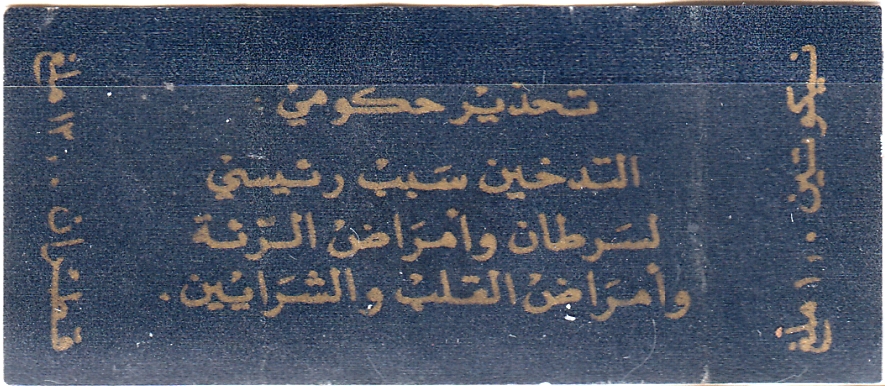 تحذير حكومي :
التدخين سبب رئيسي
لسرطان وأمراض الرئة
وأمراض القلب والشرايين .
نيكوتين ١,٠٠ ملغ
قطران ١٣,٠٠ ملغ